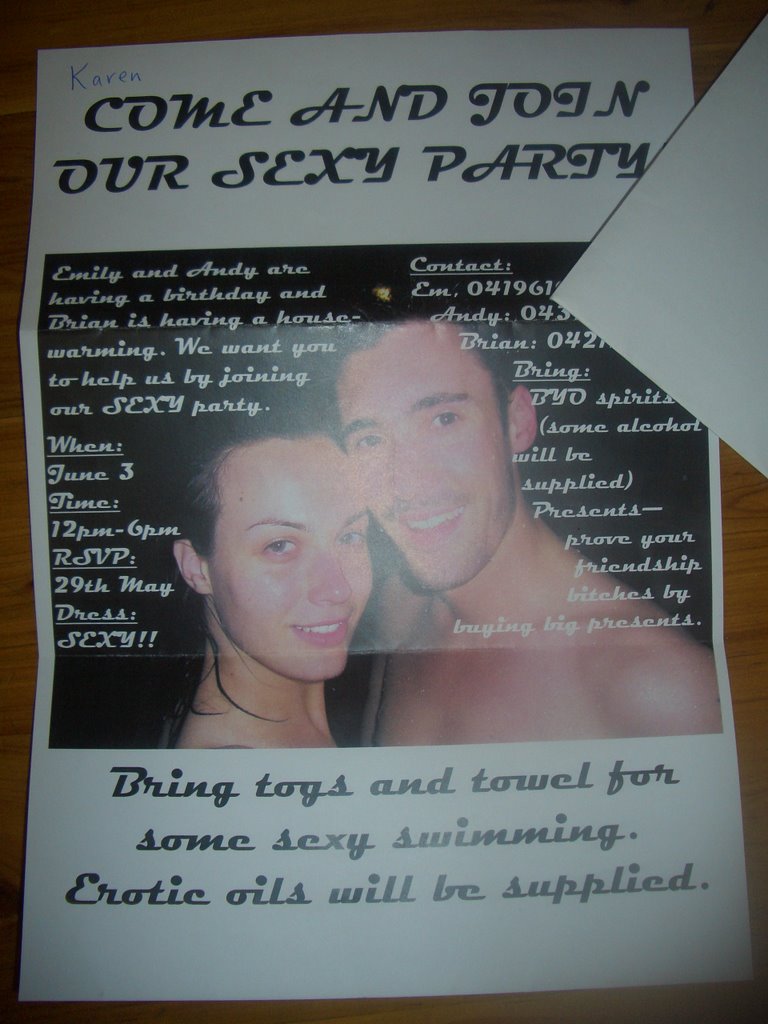 Karen
COME AND JOIN
OUR SEXY PARTY
Emily and Andy are
having a birthday and
Brian is having a house-
warming. We want you
to help us by joining
our SEXY party.
When:
June 3
Time:
12pm-6pm
RSVP:
29th May
Dress:
SEXY!!
Contact:
Em, 041961
Andy: 043
Brian: 0421
Bring:
BYO spirits
(some alcohol
will be
supplied)
Presents—
prove your
friendship
bitches by
buying big presents.
Bring togs and towel for
some sexy swimming.
Erotic oils will be supplied.